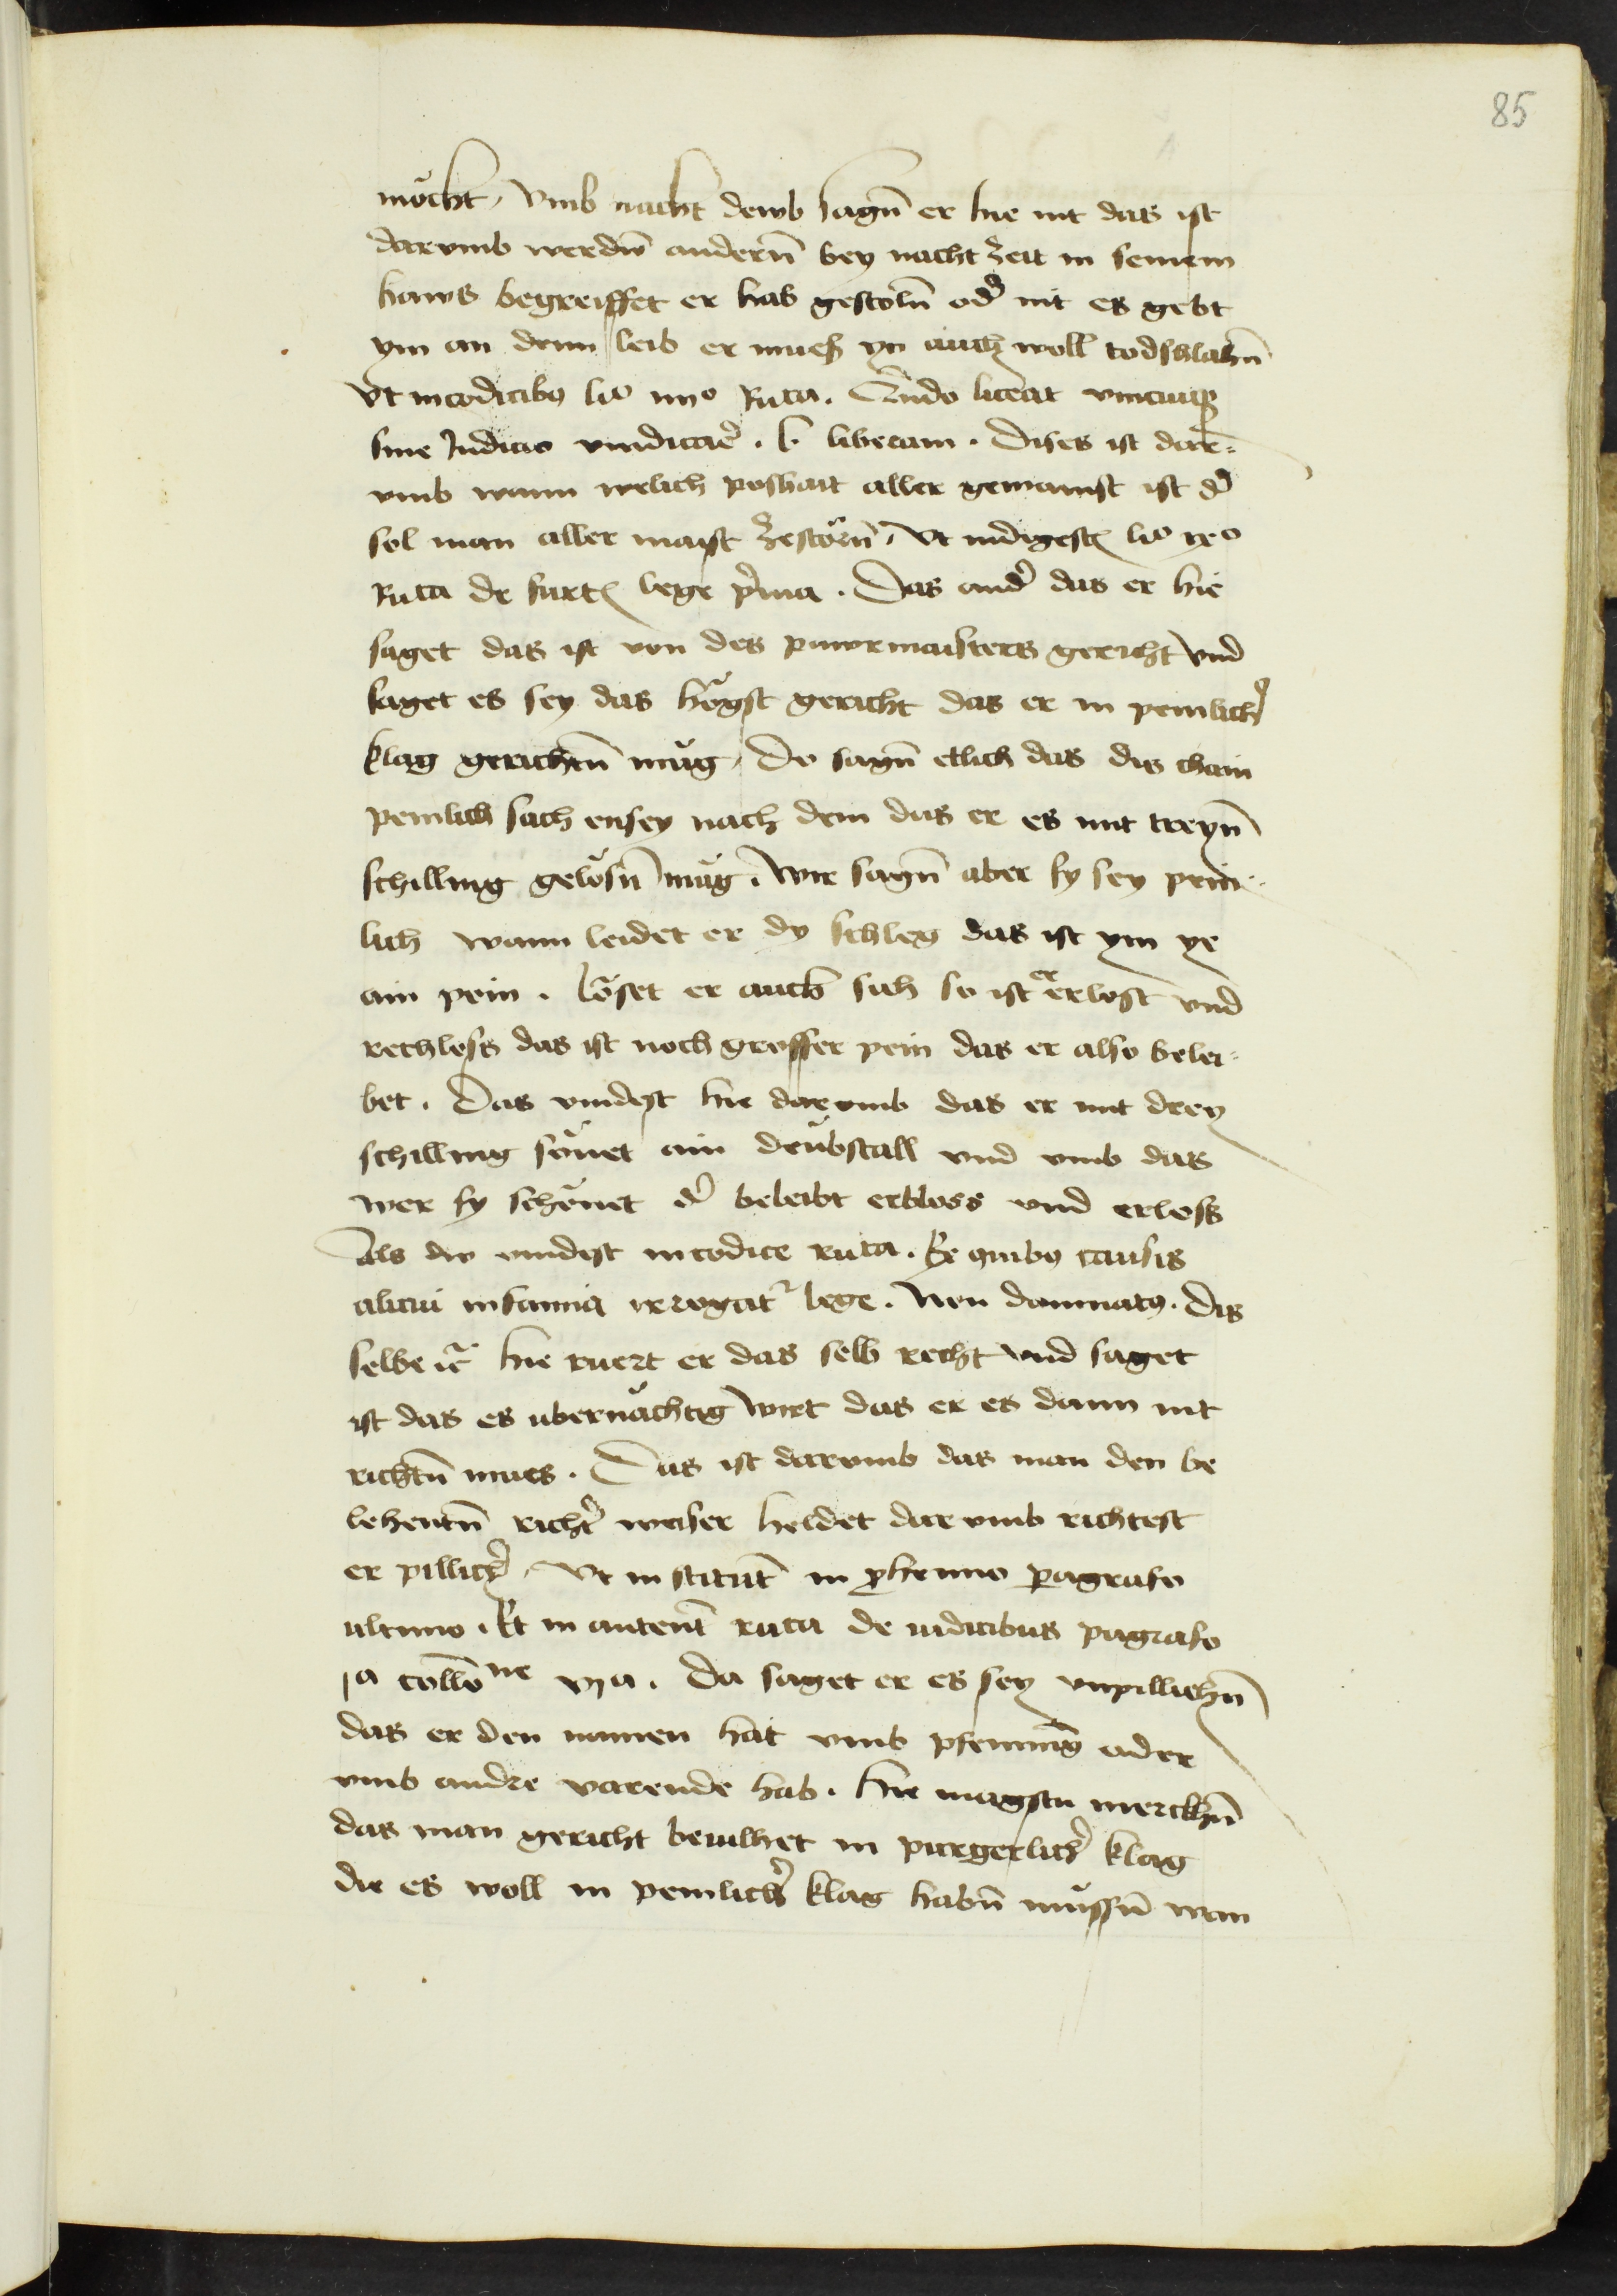 85
möcht, Vmb nacht dewb sagn̄ er hie nit das ist
darvmb werdn̄ andern̄ bey nacht zeit in seinem
haws begreiffet er hab gestoln̄ od̛ nit es gebt
ym an denn leib er mueß yn auch woll todslahn̄
Vt in codicibꝯ liº iiiº Ruca. Qn̄do liceat vnicuiqꝫ
sine Judicio vindicar̛. l. liberam. Dises ist dar¬
vmb wann welich poshait aller gemainst ist d̛
sol man aller maist zestörn̄, Vt in digestꝭ liº ixº
Ruca de furtꝭ lege p̛ma. Das and̛ das er hie
saget das ist von des pawrmaisters gericht vnd
saget es sey das högst gericht das er in peinlich̛
klag gerichtn̄ mug, Do sagn̄ etlich das dis chain
peinlich sach ensey nach dem das er es mit treyn̄
schilling gelösn̄ mug. Wir sagn̄ aber sy sey pein¬
lich wann leidet er dy schleg das ist ym ye
ain pein. löset er auch sich so ist er erlost vnd
rechloss das ist noch grosser pein das er also belei¬
bet. Das vindest hie darvmb das er mit drey
schilling sönet ain deubstall vnd vmb das
wer sy schönet d̛ beleibt erbloss vnd erloss
Als dw vindest in codice ruca. Ex quibꝯ causis
alicui infamia irrogat᷑ lege. Non damnatꝯ. Dis
selbe ꝛc̄ hie ruert er das selb recht vnd saget
ist das es vbernächtig wirt das er es dann nit
richtn̄ mues. Das ist darvmb das man den be
lehentn̄ richt̛ weiser heldet darvmb richtest
er pillich̛, Vt in stitut̄ in p̛hemio paragrafo
ultimo. Et in autent̄ ruca de iudicibus pagrafo
ja collōne vja. Da saget er es sey vnpillichn̄
das er den namen hat vmb pfenning ader
vmb andre varende hab. Hie magstu merckhn̄
das man gericht beuilhet in purgerlich̛ klag
die es woll in peinlich̛ klag habn̄ müssn̄ wan